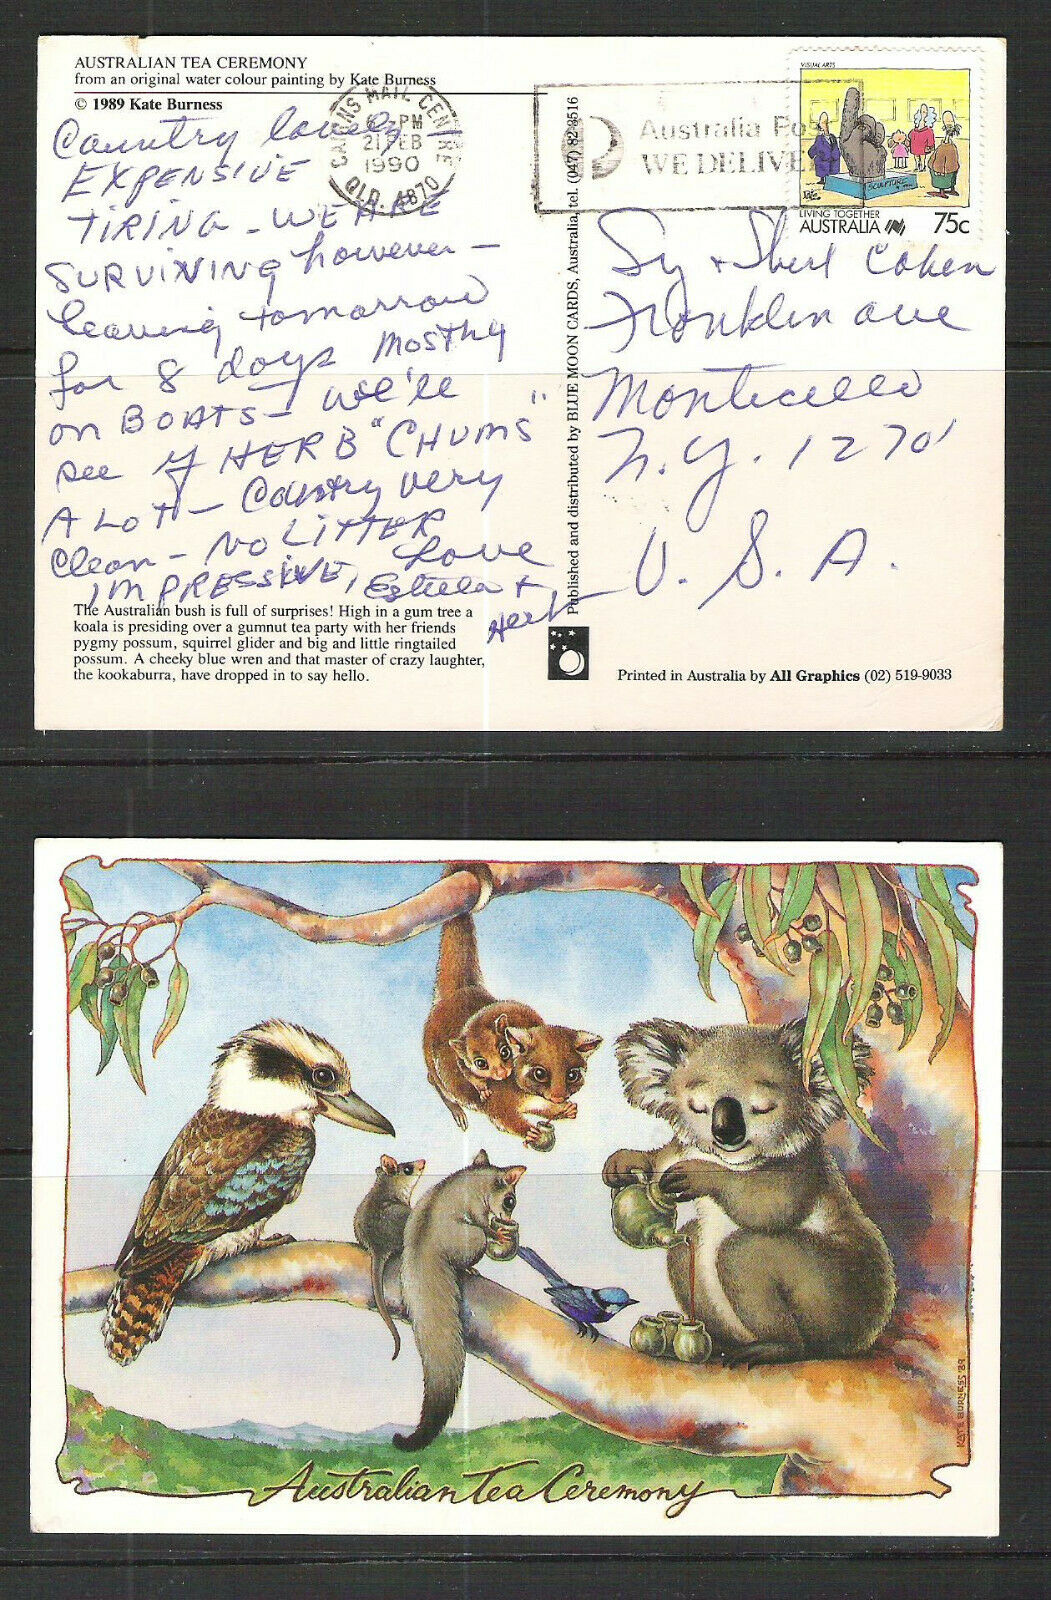 AUSTRALIAN TEA CEREMONY
from an original water colour painting by Kate Burness
© 1989 Kate Burness
Country lovely
EXPENSIVE
TIRING - WE ARE
SURVIVING however -
leaving tomorrow
for 8 days mostly
on BOATS - We'll
see of HERB "CHUMS"
A LOT - Country very
Clean - NO LITTER
IMPRESSIVE, Love
Estelle +
Herb
The Australian bush is full of surprises! High in a gum tree a
koala is presiding over a gumnut tea party with her friends
pygmy possum, squirrel glider and big and little ringtailed
possum. A cheeky blue wren and that master of crazy laughter,
the kookaburra, have dropped in to say hello.
CAIRNS MAIL CENTRE
PM
21 FEB
1990
QLD. 4870
Australia Post
WE DELIVER
VISUAL ARTS
SCULPTURE
LIVING TOGETHER
AUSTRALIA 75c
Published and distributed by BLUE MOON CARDS, Australia, tel. (047) 82 3516
Sy + Shirl Cohen
Franklin ave
Monticello
N.Y. 12701
U. S. A.
Printed in Australia by All Graphics (02) 519-9033
KATE BURNESS '89
Australian Tea Ceremony